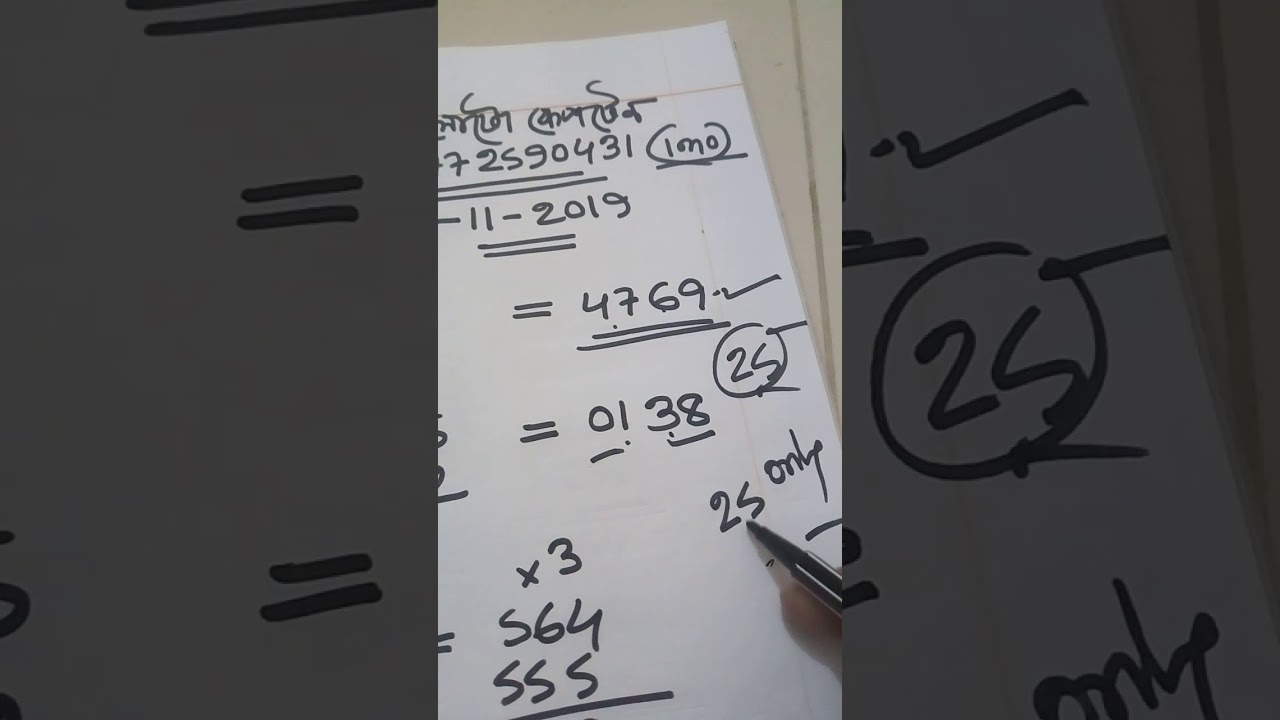 লোটো কেপটেন
72590431 (imo)
-11-2019
= 4769.✓
25
= 01 38
only
25
x 3
= 564
555